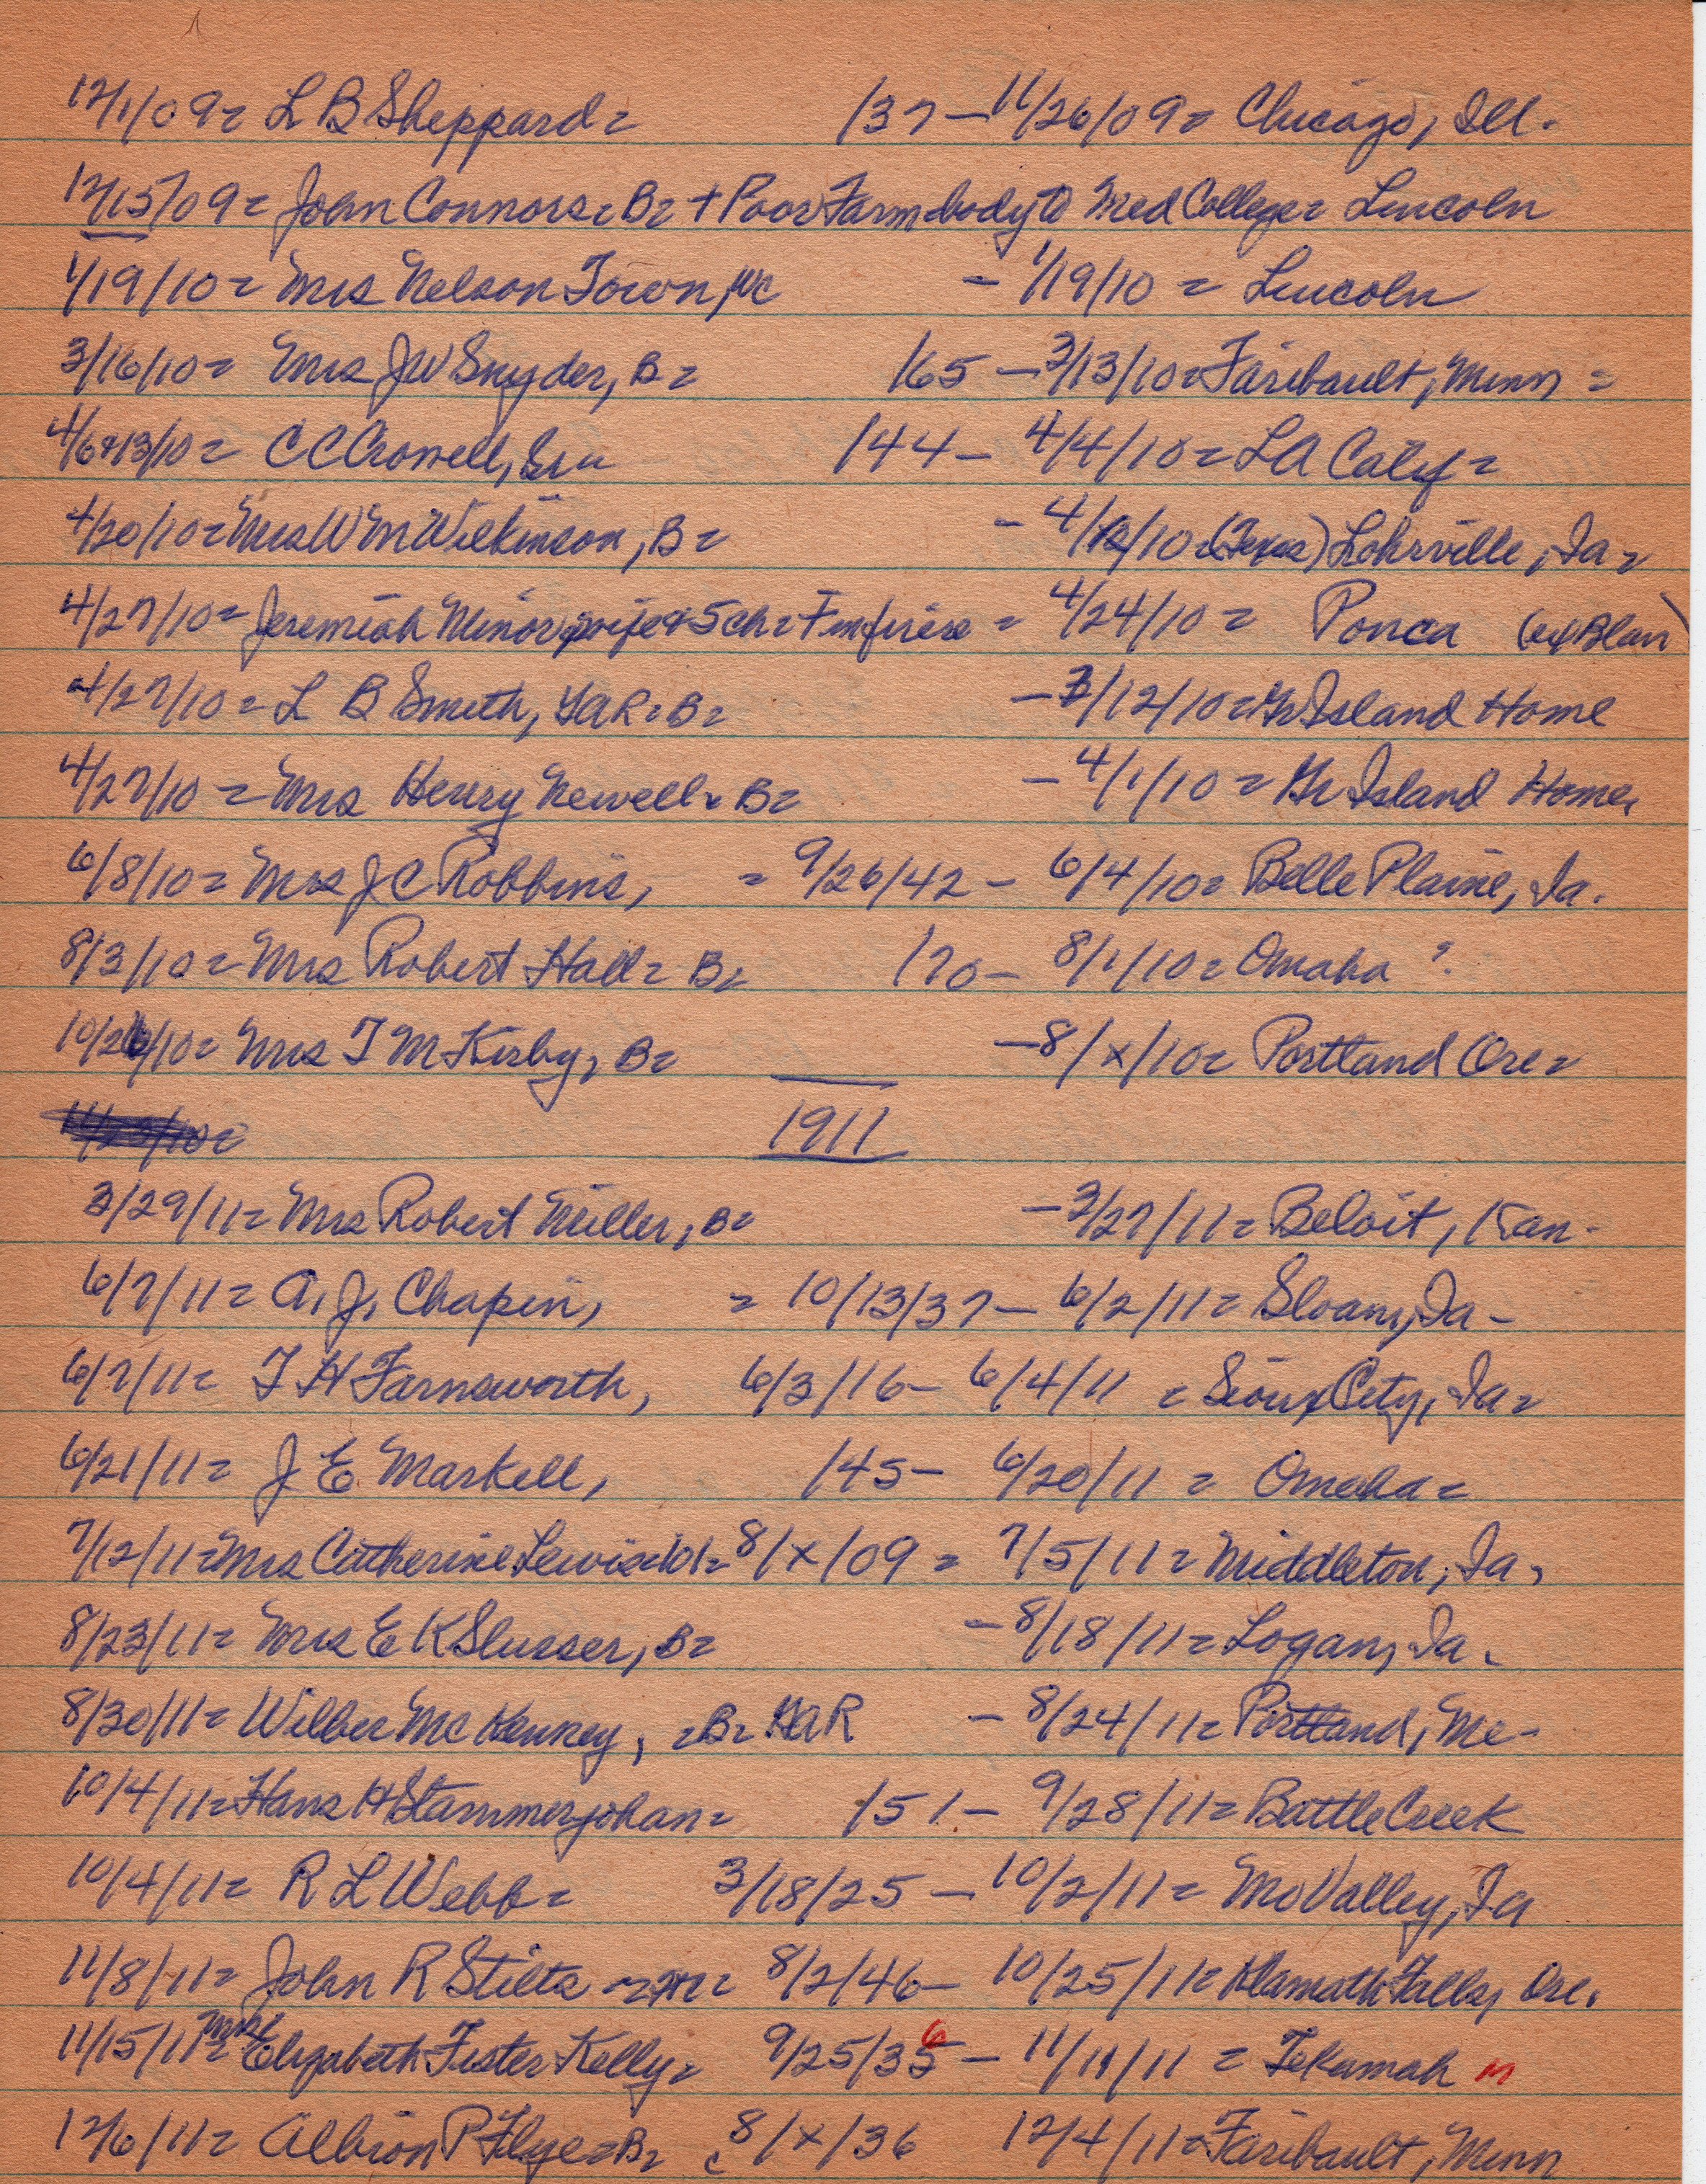 12/1/09= L B Sheppard= 137 — 11/26/09= Chicago, Ill.
12/15/09= John Connors= B= + Poor Farm body to Med College= Lincoln
1/19/10= Mrs Nelson Town, - 1/19/10 = Lincoln
3/16/10= Mrs J W Snyder, B= 165 — 3/13/10= Faribault, Minn =
4/6+13/10= C C Crowell, Sr 144 — 4/4/10= LA Calif=
4/20/10= Mrs Wm Wilkinson, B= - /10= (Texas) Lohrville, Ia=
4/27/10= Jeremiah Minor wife + 5 ch= in fire = 4/24/10= Ponca (of Blair)
4/27/10= L B Smith, GAR= B= — 3/12/10= Gr Island Home
4/27/10= Mrs Henry Newell= B= — 4/1/10= Gr Island Home.
6/8/10= Mrs J C Robbins, = 9/26/42 — 6/4/10= Belle Plaine, Ia.
8/3/10= Mrs Robert Hall= B= 170 — 8/1/10= Omaha ?
10/26/10= Mrs T M Kirby, B= — 8/x/10= Portland Ore=
1911
3/29/11= Mrs Robert Miller, B= — 3/27/11= Beloit, Kan-
6/7/11= A. J. Chapin, = 10/13/37 — 6/2/11= Sloan, Ia-
6/7/11= T H Farnsworth, 6/3/16 — 6/4/11 = Sioux City, Ia=
6/21/11= J E Markell, 145 — 6/20/11= Omaha=
7/12/11= Mrs Catherine Lewis= 101= 8/x/09 = 7/5/11= Middleton, Ia,
8/23/11= Mrs E K Slusser, B= — 8/18/11= Logan, Ia.
8/30/11= Wilber McKenney, =B= GAR — 8/24/11= Portland, Me-
10/4/11= Hans H Stammerjohan= 151 — 9/28/11= Battle Creek
10/4/11= R L Webb= 3/18/25 — 10/2/11= Mo Valley, Ia
11/8/11= John R Stilts 8/2/46 — 10/25/11= Klamath Falls, Ore.
11/15/11= Mrs Elizabeth Fister Kelly= 9/25/35 6 — 11/11/11 = Tekamah
12/6/11= Albion P Flye= B= 8/x/36 12/4/11= Faribault, Minn